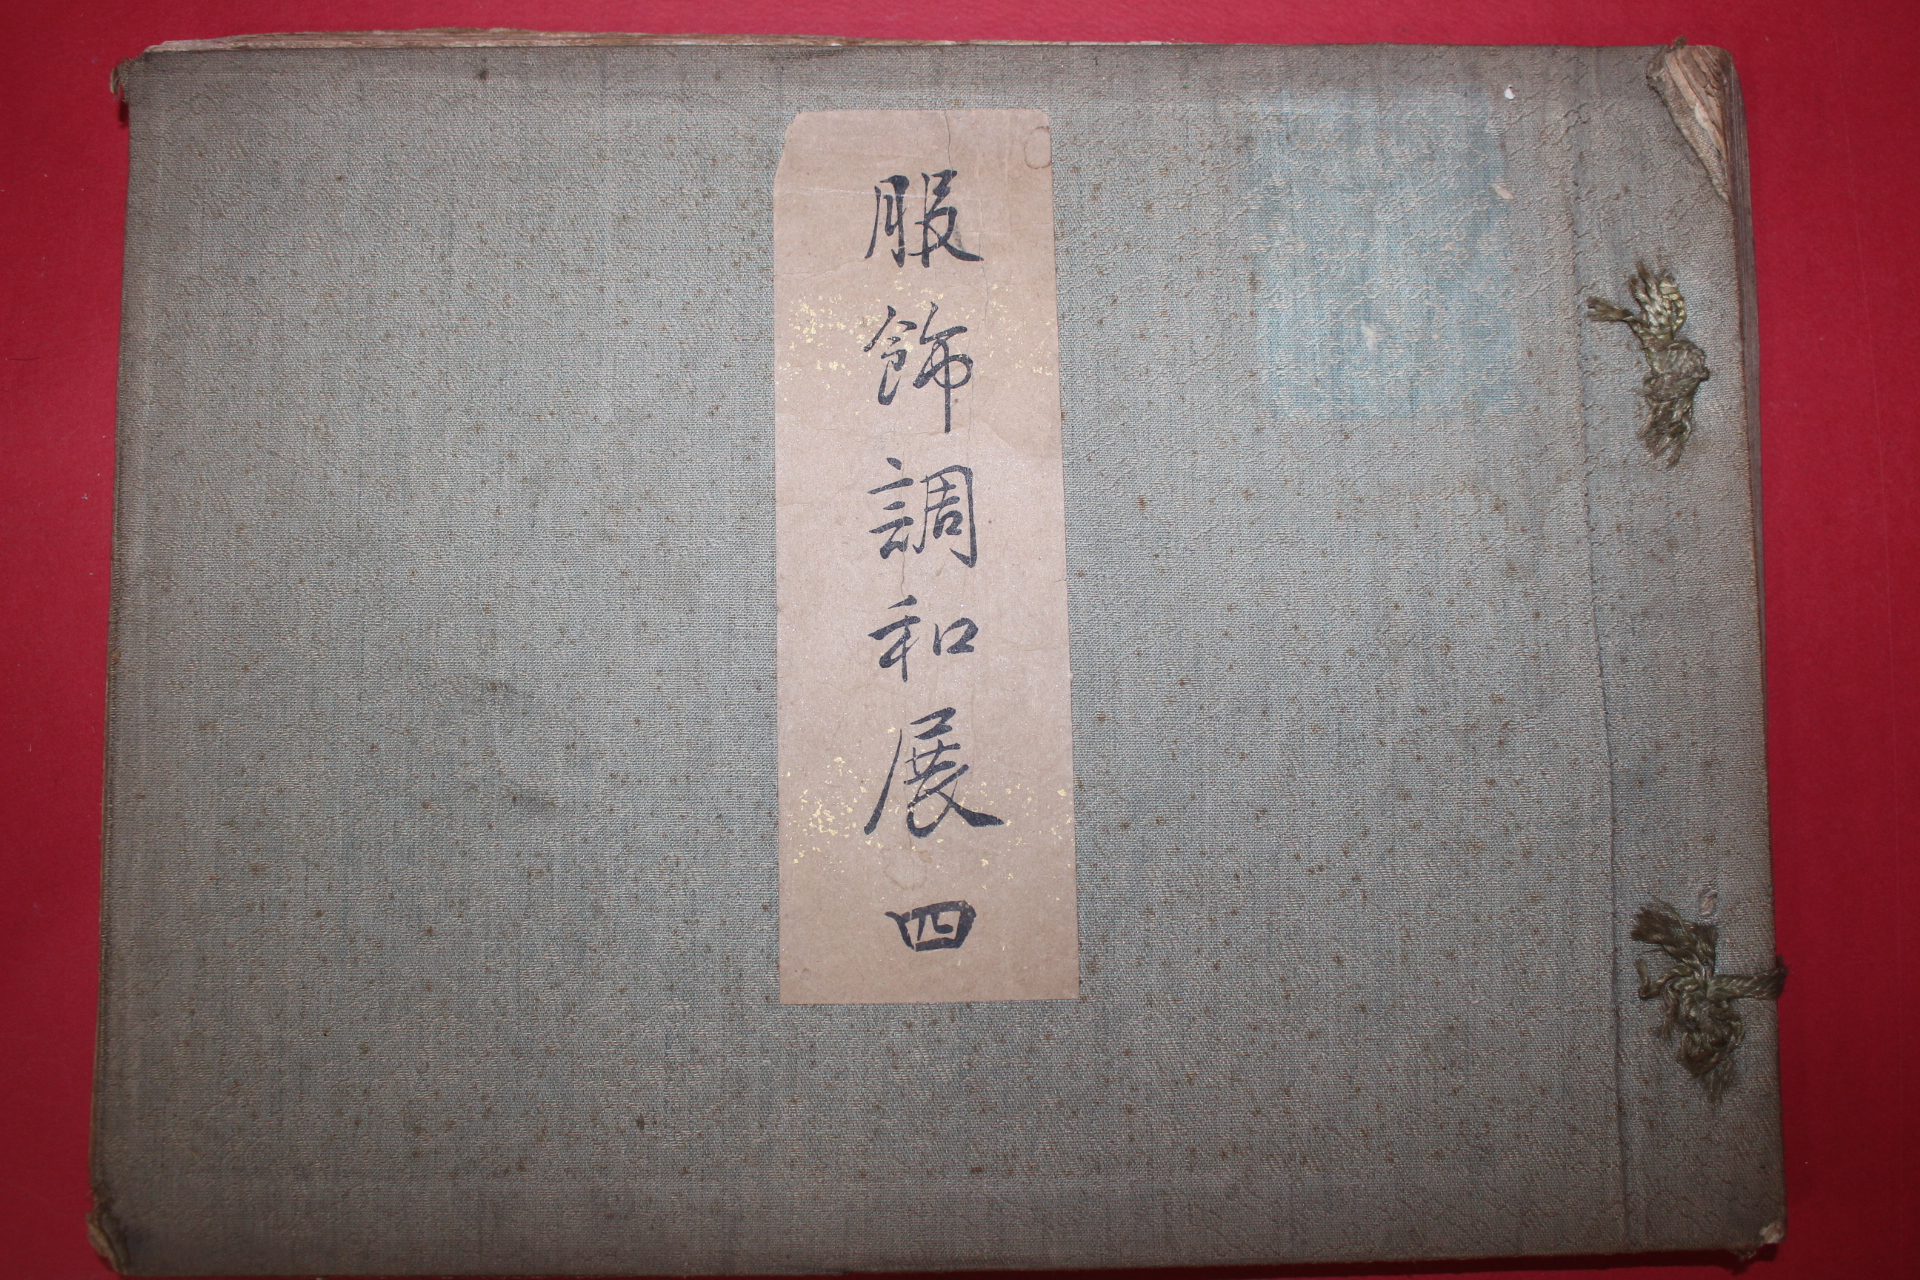 服飾調和展四